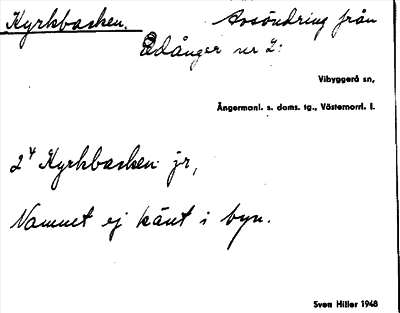 Kyrkbacken. Avsöndring från
Edånger nr 2:
Vibyggerå sn,
Ångermanl. s. doms. tg., Västernorrl. l.
2⁴ Kyrkbacken jr,
Namnet ej känt i byn.
Sven Hiller 1948